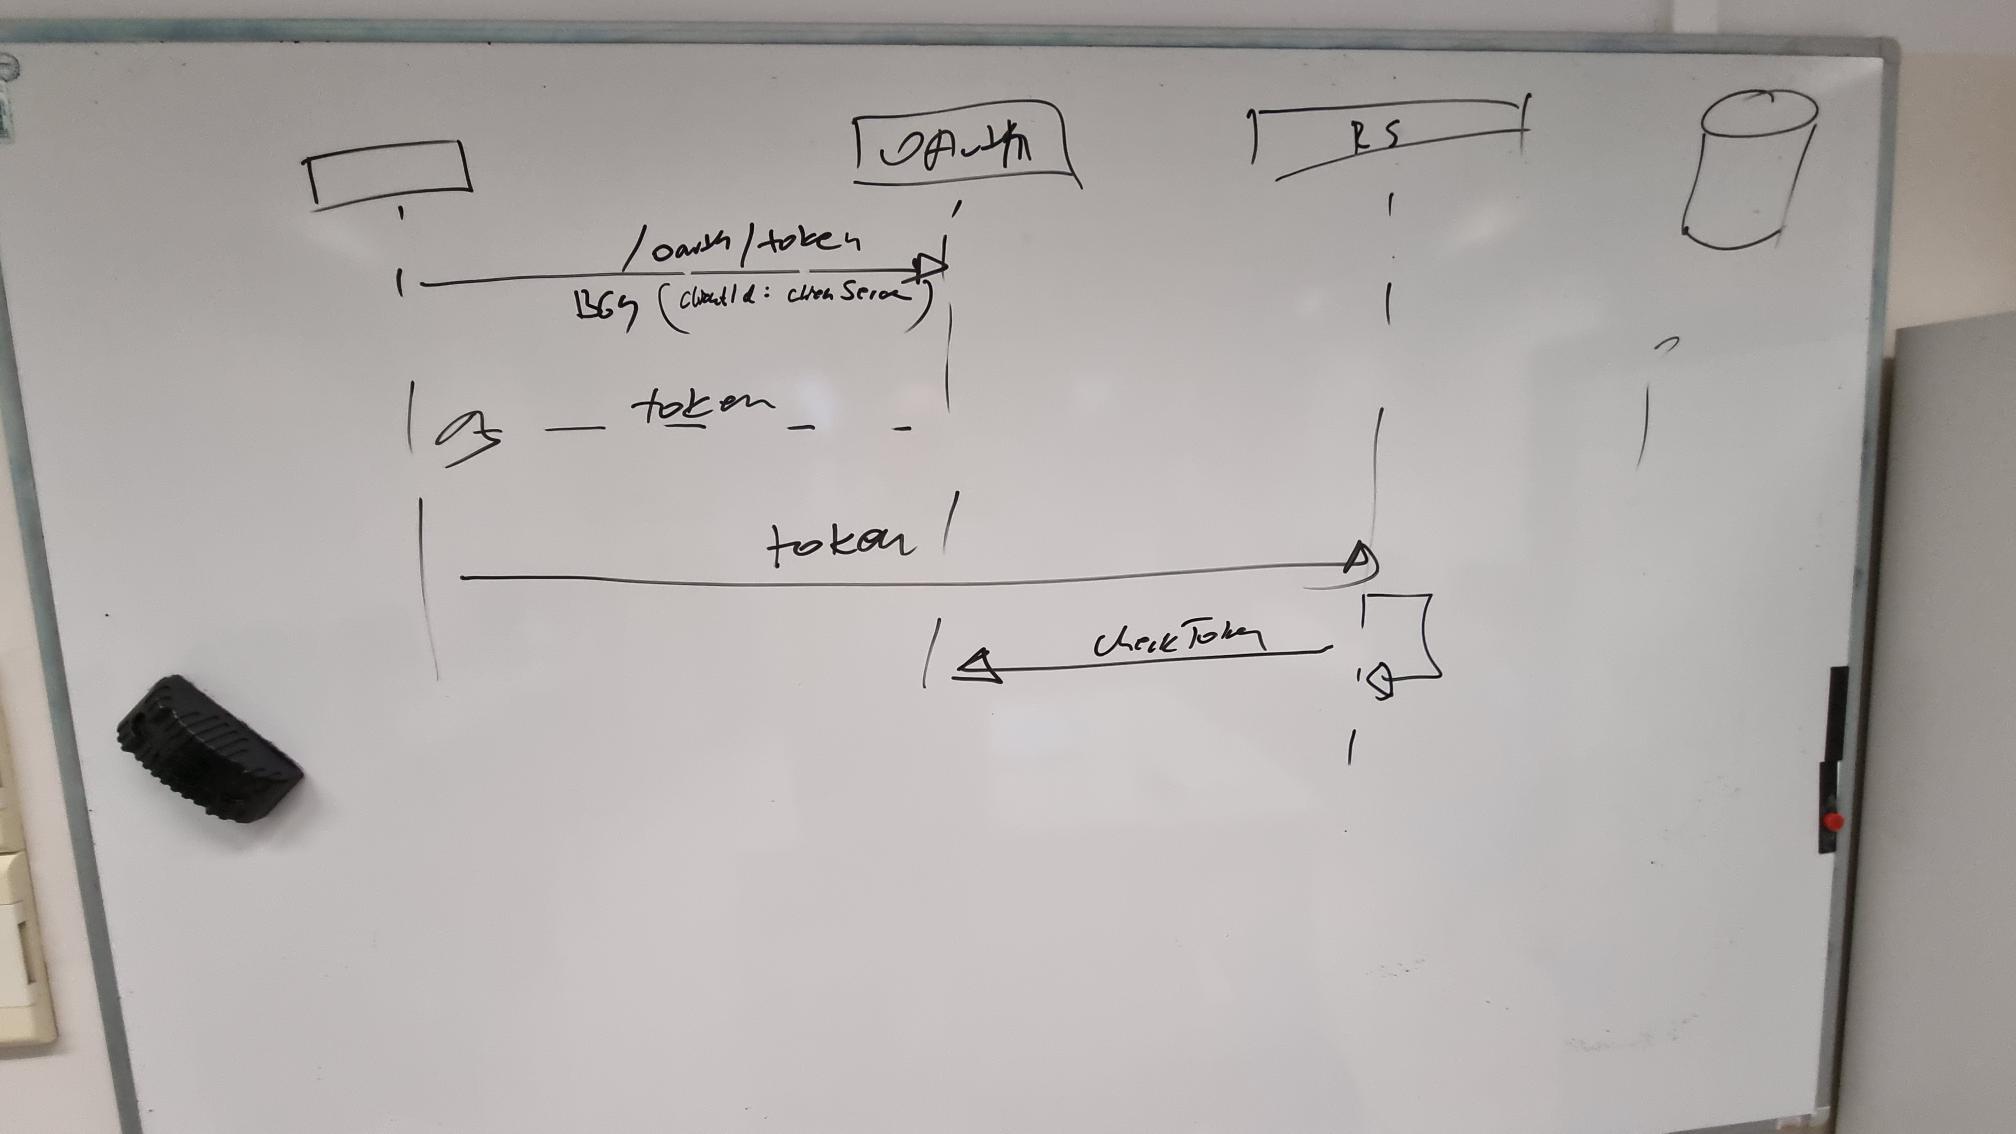 OAuth
RS
/oauth/token
B64 (clientId: clien Secre)
token
token
checkToken